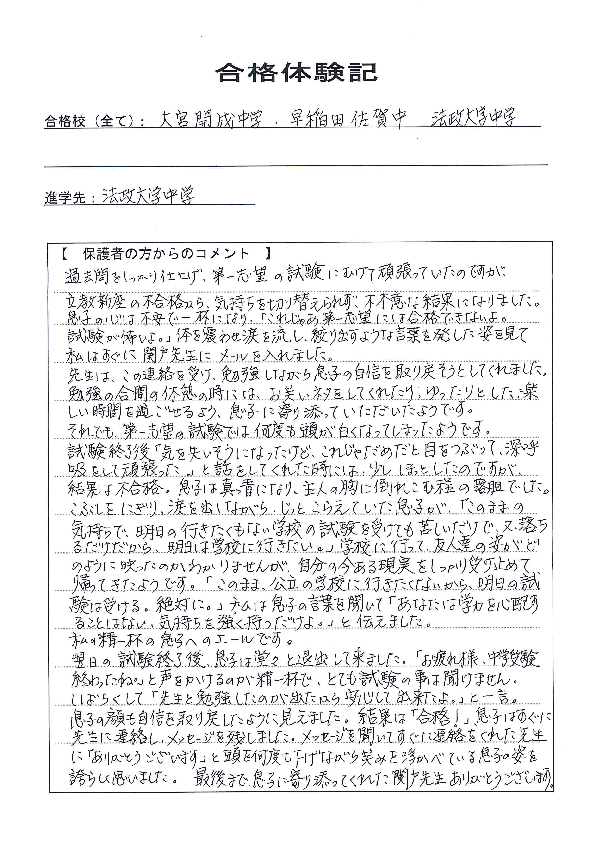 合格体験記
合格校（全て）： 大宮開成中学 ． 早稲田佐賀中 法政大学中学
進学先： 法政大学中学
【 保護者の方からのコメント 】
過去問をしっかり仕上げ、第一志望の試験にむけて頑張っていたのですが
立教新座の不合格から、気持ちを切り替えられず、不本意な結果になりました。
息子の心は不安で一杯になり、「これじゃあ第一志望には合格できないよ。
試験が怖いよ。」体を震わせ涙を流し、絞り出すような言葉を発した姿を見て
私はすぐに関戸先生にメールを入れました。
先生は、この連絡を受け、勉強しながら息子の自信を取り戻そうとしてくれました。
勉強の合間の休憩の時には、お笑いネタをしてくれたり、ゆったりとした楽
しい時間を過ごせるよう、息子に寄り添っていただいたようです。
それでも、第一志望の試験では何度も頭が白くなってしまったようです。
試験終了後「気を失いそうになったけど、これじゃだめだと目をつぶって、深呼
吸をして頑張った。」と話をしてくれた時には、少しほっとしたのですが、
結果は不合格。息子は真っ青になり、主人の胸に倒れこむ程の落胆でした。
こぶしをにぎり、涙を出しながら、じっとこらえていた息子が、「このままの
気持ちで、明日の行きたくもない学校の試験を受けても苦しいだけで、又、落ち
るだけだから、明日は学校に行きたい。」学校に行って、友人達の姿がど
のように映ったのかわかりませんが、自分の今ある現実をしっかり受け止めて
帰ってきたようです。「このまま、公立の学校に行きたくないから、明日の試
験は受ける。絶対に。」私は息子の言葉を聞いて「あなたは学力を心配す
ることはない、気持ちを強く持つだけよ。」と伝えました。
私の精一杯の息子へのエールです。
翌日の試験終了後、息子は堂々と退出して来ました。「お疲れ様、中学受験
終わったね。」と声をかけるのが精一杯で、とても試験の事は聞けません。
しばらくして「先生と勉強したのが出たから安心して出来たよ。」と一言。
息子の顔も自信を取り戻したように見えました。結果は「合格！」息子はすぐに
先生に連絡し、メッセージを残しました。メッセージを聞いてすぐに連絡をくれた先生
に「ありがとうございます」と頭を何度も下げながら笑みを浮かべている息子の姿を
誇らしく思いました。 最後まで息子に寄り添ってくれた関戸先生ありがとうございます。